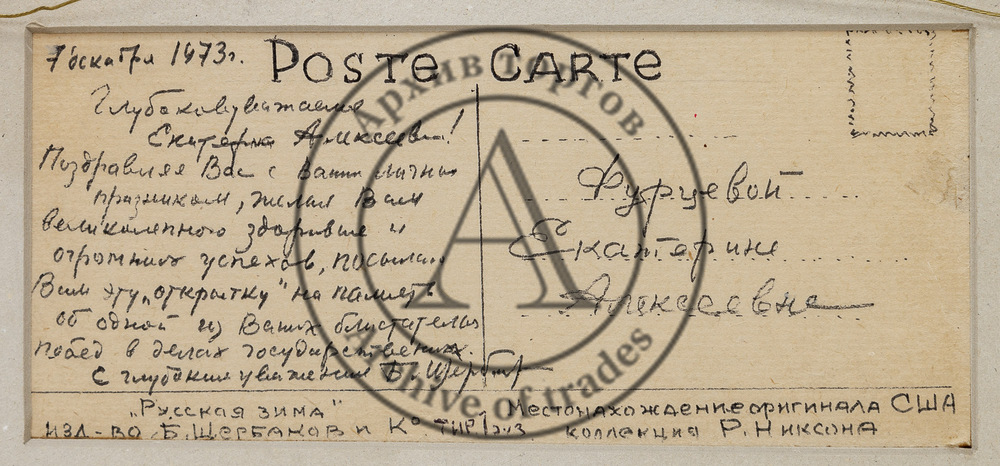 7 декабря 1973г.
POSTE CARTE
Глубокоуважаемая
Екатерина Алексеевна!
Поздравляя Вас с Вашим личным
праздником, желая Вам
великолепного здоровья и
огромных успехов, посылаю
Вам эту „открытку" на память
об одной из Ваших блистательных
побед в делах государственных.
С глубоким уважением Б. Щербак
Фурцевой
Екатерине
Алексеевне
„Русская зима"
изд-во Б. Щербаков и К° тир. 1 экз
Местонахождение оригинала США
коллекция Р. Никсона
Архив торгов
A
Archive of trades